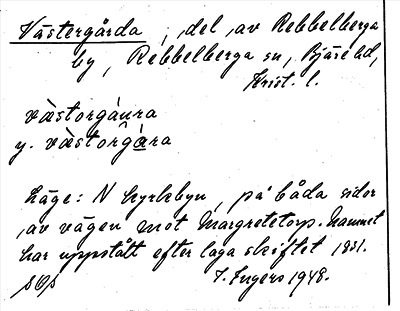 Västergårda, del av Rebbelberga
by, Rebbelberga sn, Bjäre hd,
Krist. l.
västorgåura
y. västorgåra
Läge: N kyrkbyn, på båda sidor
av vägen mot Margretetorp. Namnet
har uppstått efter laga skiftet 1831.
I. Ingers 1948.